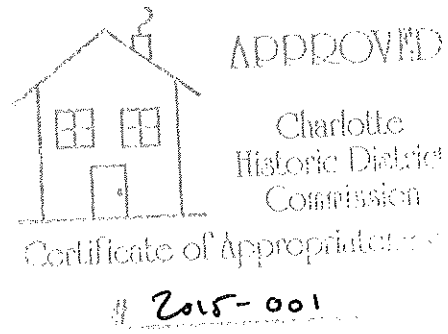 APPROVED
Charlotte
Historic District
Commission
Certificate of Appropriateness
# 2015-001